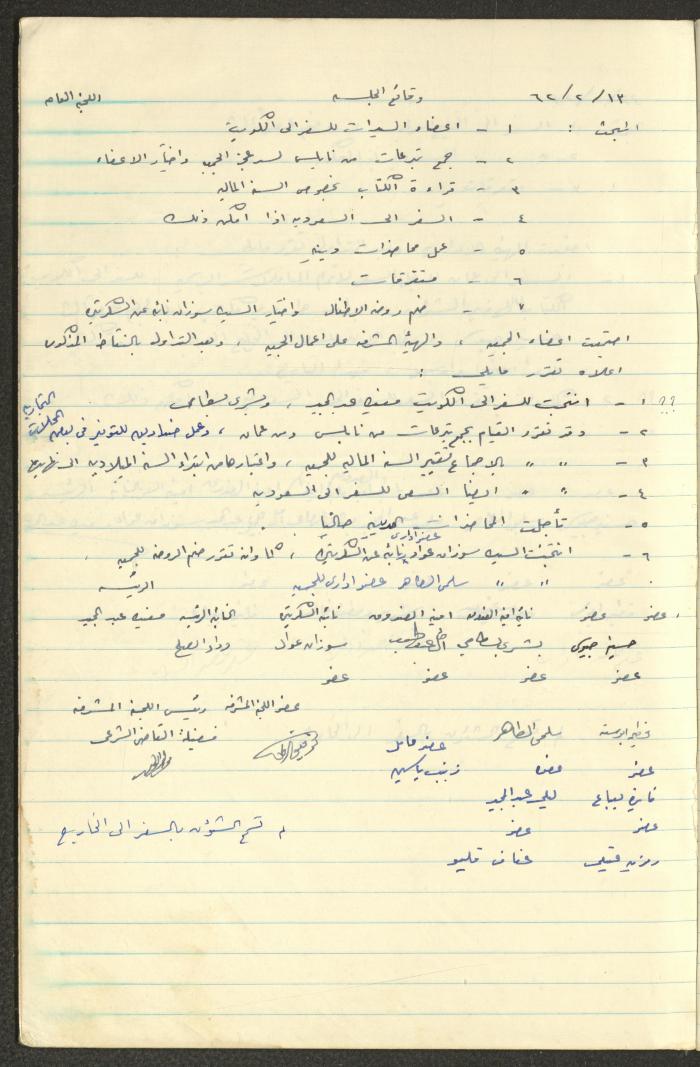 ١٣/٢/٦٢ وقائع الجلسه اللجنه العامه
البحث : ١ - اعضاء السيدات للسفر الى الكويت
٢ - جمع تبرعات من نابلس لسد عجز الجمعيه واختيار الاعضاء
٣ - قراءة الكتاب بخصوص السنة الماليه
٤ - السفر الى السعوديه اذا امكن ذلك
٥ - عمل محاضرات دينيه
٦ - متفرقات
٧ - ضم روضة الاطفال واختيار السيده سوزان نائبة عن السكرتيره
اجتمعت اعضاء الجمعيه ، والهيئة المشرفه على اعمال الجمعيه ، وبعد التداول بالنقاط المذكوره
اعلاه تقرر مايلي :
١ - انتخبت للسفر الى الكويت مفيده عبد المجيد ، وبشرى بسطامي
٢ - وقد تقرر القيام بجمع تبرعات من نابلس ومن عمان ، وعمل صناديق للتوزيع في بعض المحلات التجاريه
٣ - " " بالاجماع تغيير السنة الماليه للجمعيه ، واعتبارها من ابتداء السنة الميلاديه الى نهايتها
٤ - " " ايضا السعي للسفر الى السعوديه
٥ - تأجلت المحاضرات الدينيه حاليا
٦ - انتخبت السيده سوزان عواد عضو اداري ونائبة عن السكرتيره ، كما وانه تقرر ضم الروضه للجمعيه .
" " سلمى الطاهر عضو اداري للجمعيه الرئيسه
عضو عضو نائبة امينة الصندوق امينة الصندوق نائبة السكرتيره النائبة الرئيسه مفيده عبد المجيد
بشرى بسطامي سوزان عواد وداد الصلح
عضو عضو عضو عضو
عضو اللجنة المشرفه رئيس اللجنة المشرفه
سلمى الطاهر عضو عامل فضيلة القاضي الشرعي
عضو عضوه زينب ياسين
فايزه بياع ليلى عبد المجيد
عضو عضو
عفاف قليبو
قسم الشؤون بالسفر الى الخارج